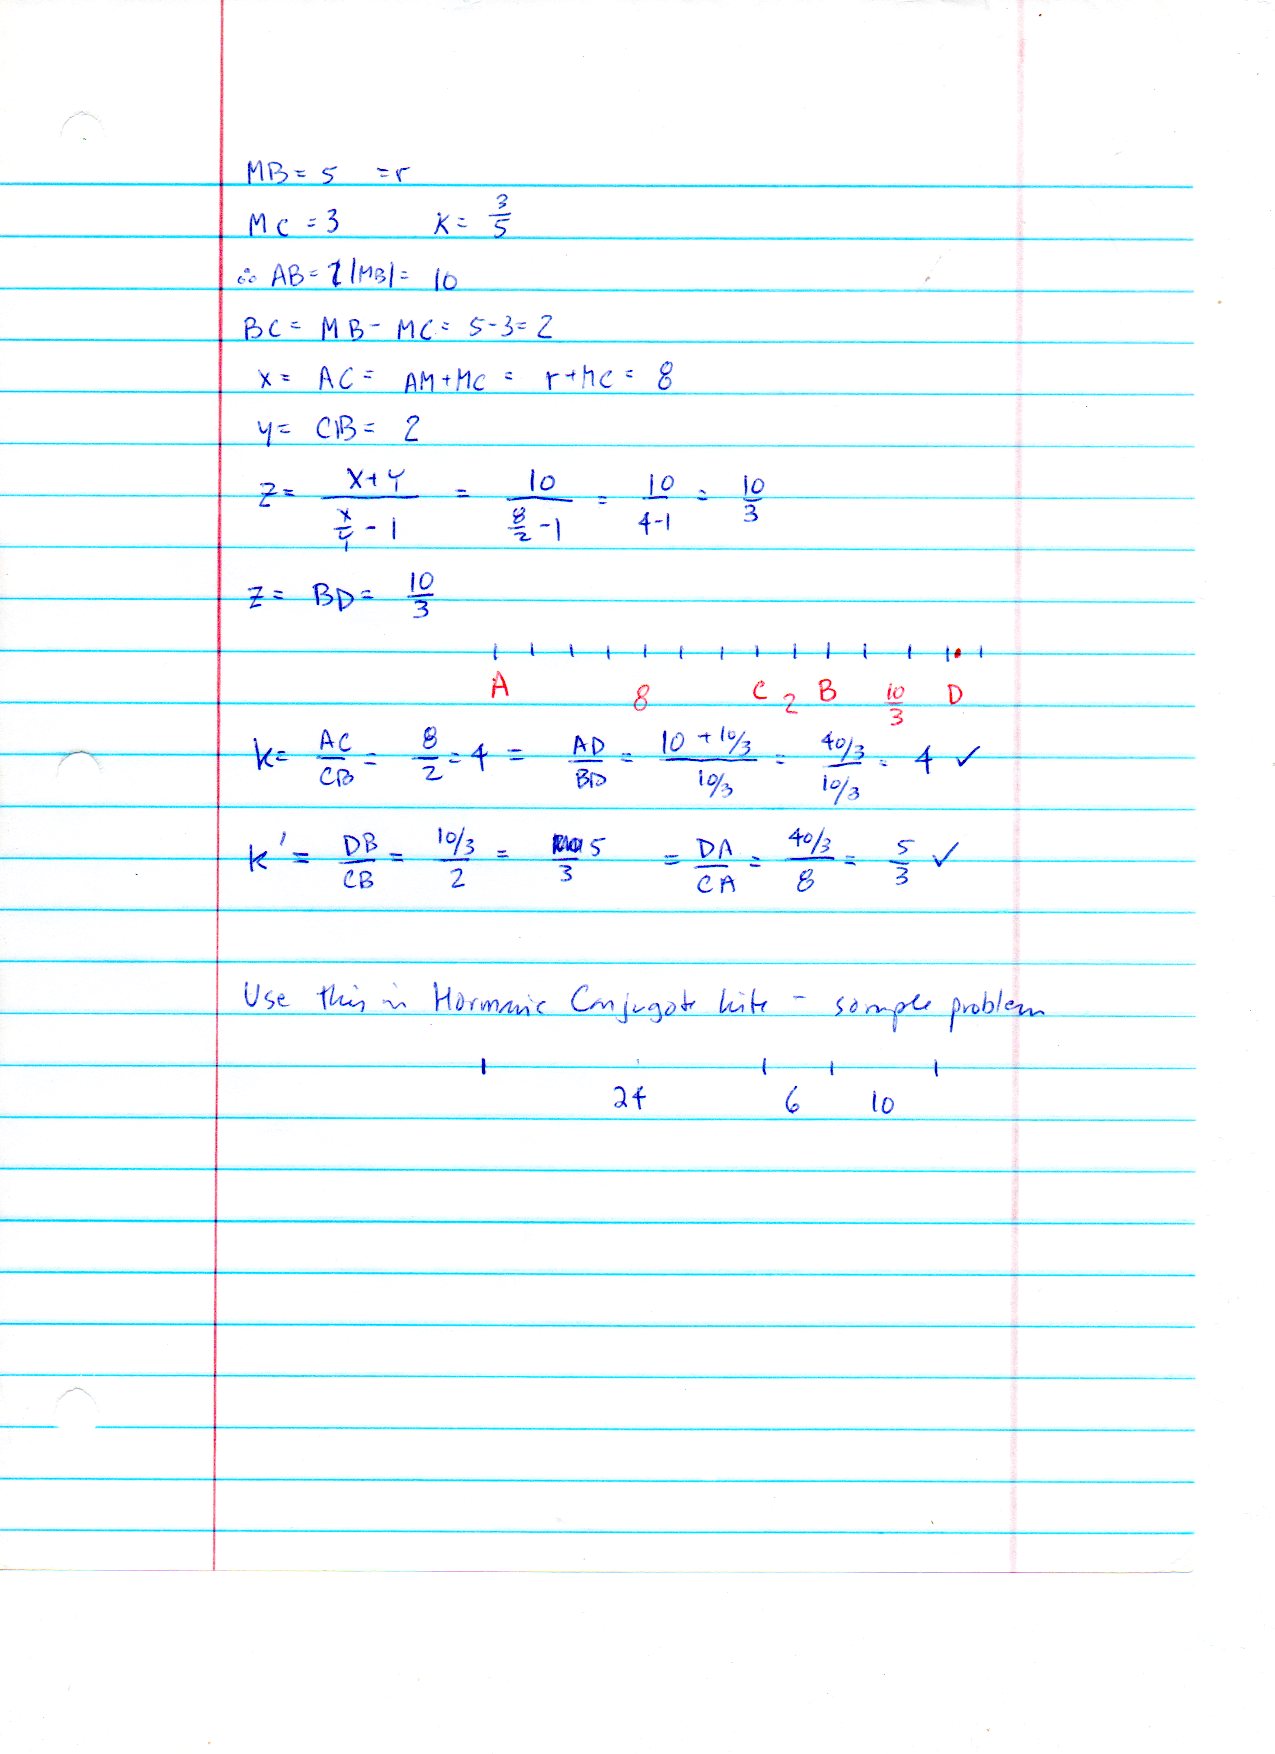 MB = 5 = r
MC = 3 K = 3/5
∴ AB = 2|MB| = 10
BC = MB - MC = 5-3 = 2
x = AC = AM+MC = r+MC = 8
y = CB = 2
z = (x+y)/(x/y - 1) = 10/(8/2 - 1) = 10/(4-1) = 10/3
z = BD = 10/3
A 8 C 2 B 10/3 D
k = AC/CB = 8/2 = 4 = AD/BD = (10 + 10/3)/(10/3) = (40/3)/(10/3) = 4 ✓
k' = DB/CB = (10/3)/2 = 5/3 = DA/CA = (40/3)/8 = 5/3 ✓
Use this in Harmonic Conjugate kite - sample problem
24 6 10